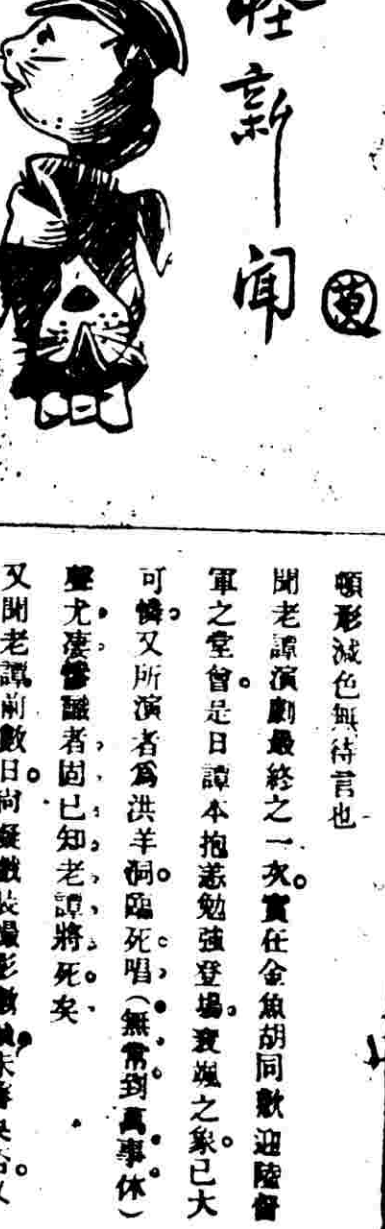 怪新聞
黄
頓形減色無待言也
聞老譚演劇最終之一次。實在金魚胡同歡迎陸督
軍之堂會。是日譚本抱恙勉強登場。衰颯之象。已大
可憐。又所演者爲洪羊洞。臨死唱（無常到萬事休）
聲尤凄慘識者固已知老譚將死矣
又聞老譚前數日。尚擬戲裝撮影數